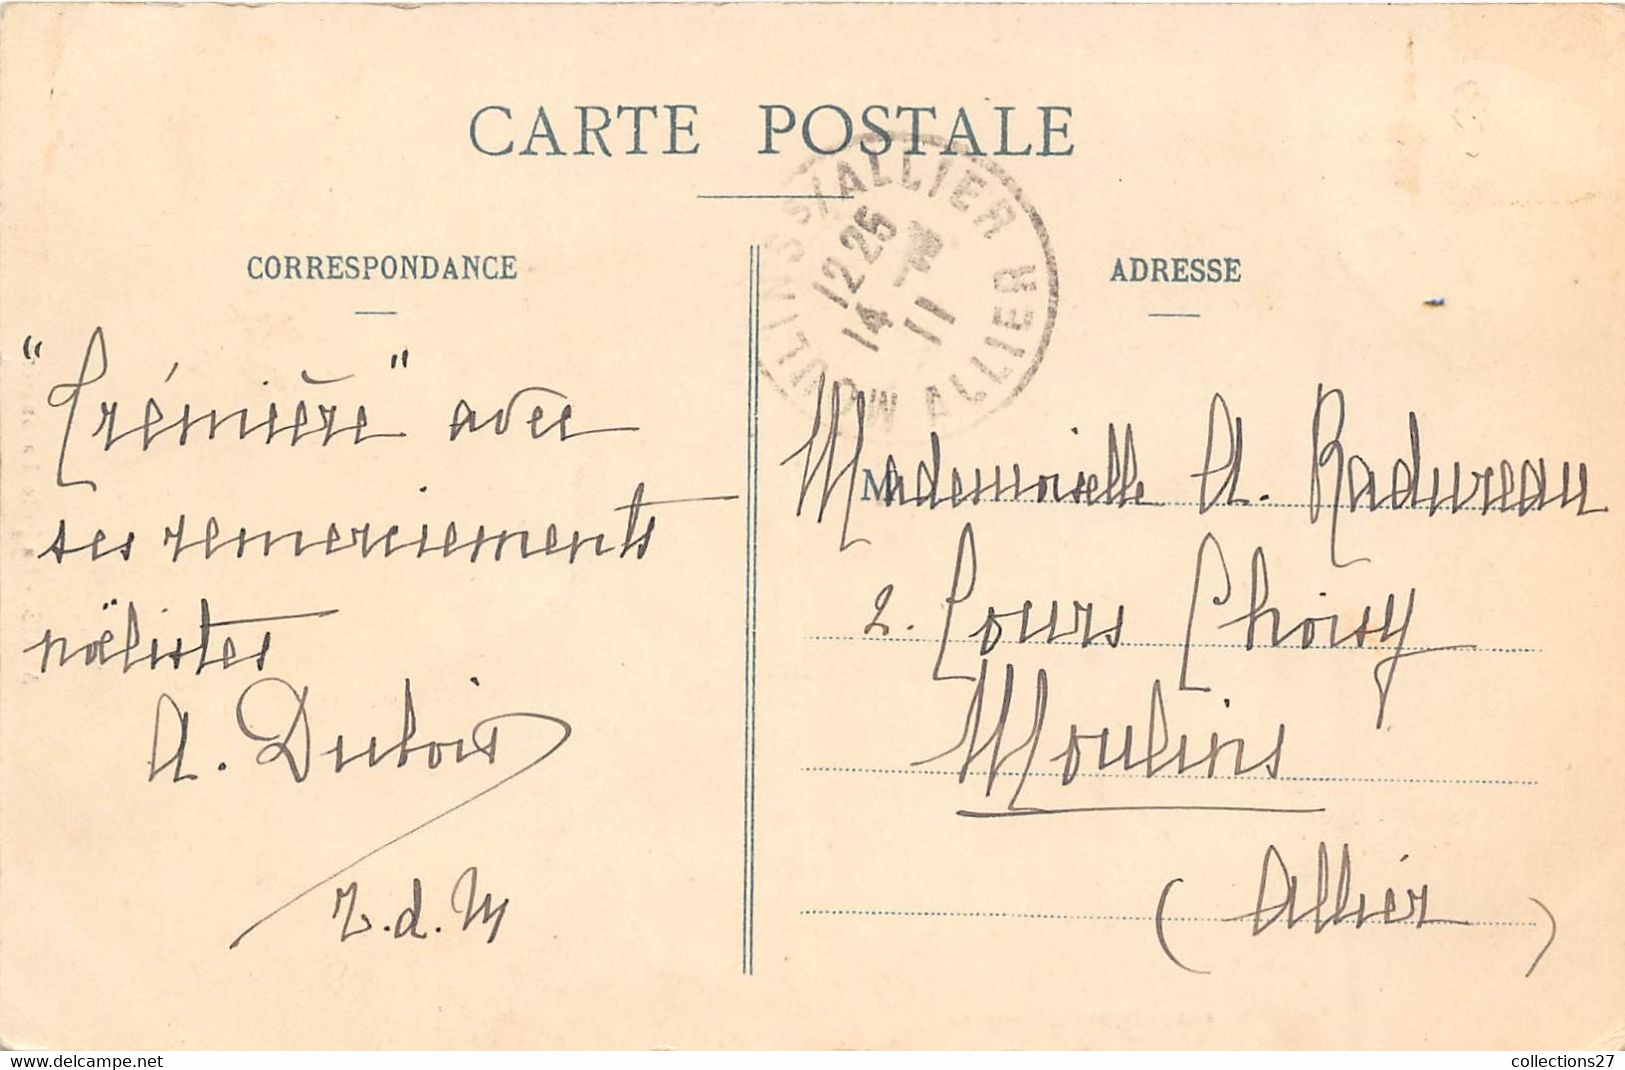 CARTE POSTALE
CORRESPONDANCE
ADRESSE
MOULINS S/ALLIER ALLIER
12 25
14 11
"Trémière" avec
ses remerciements
nöelistes
A. Dubois
r.d.M
M
Mademoiselle A. Radureau
2. Cours Choisy
Moulins
(Allier)
www.delcampe.net
collections27